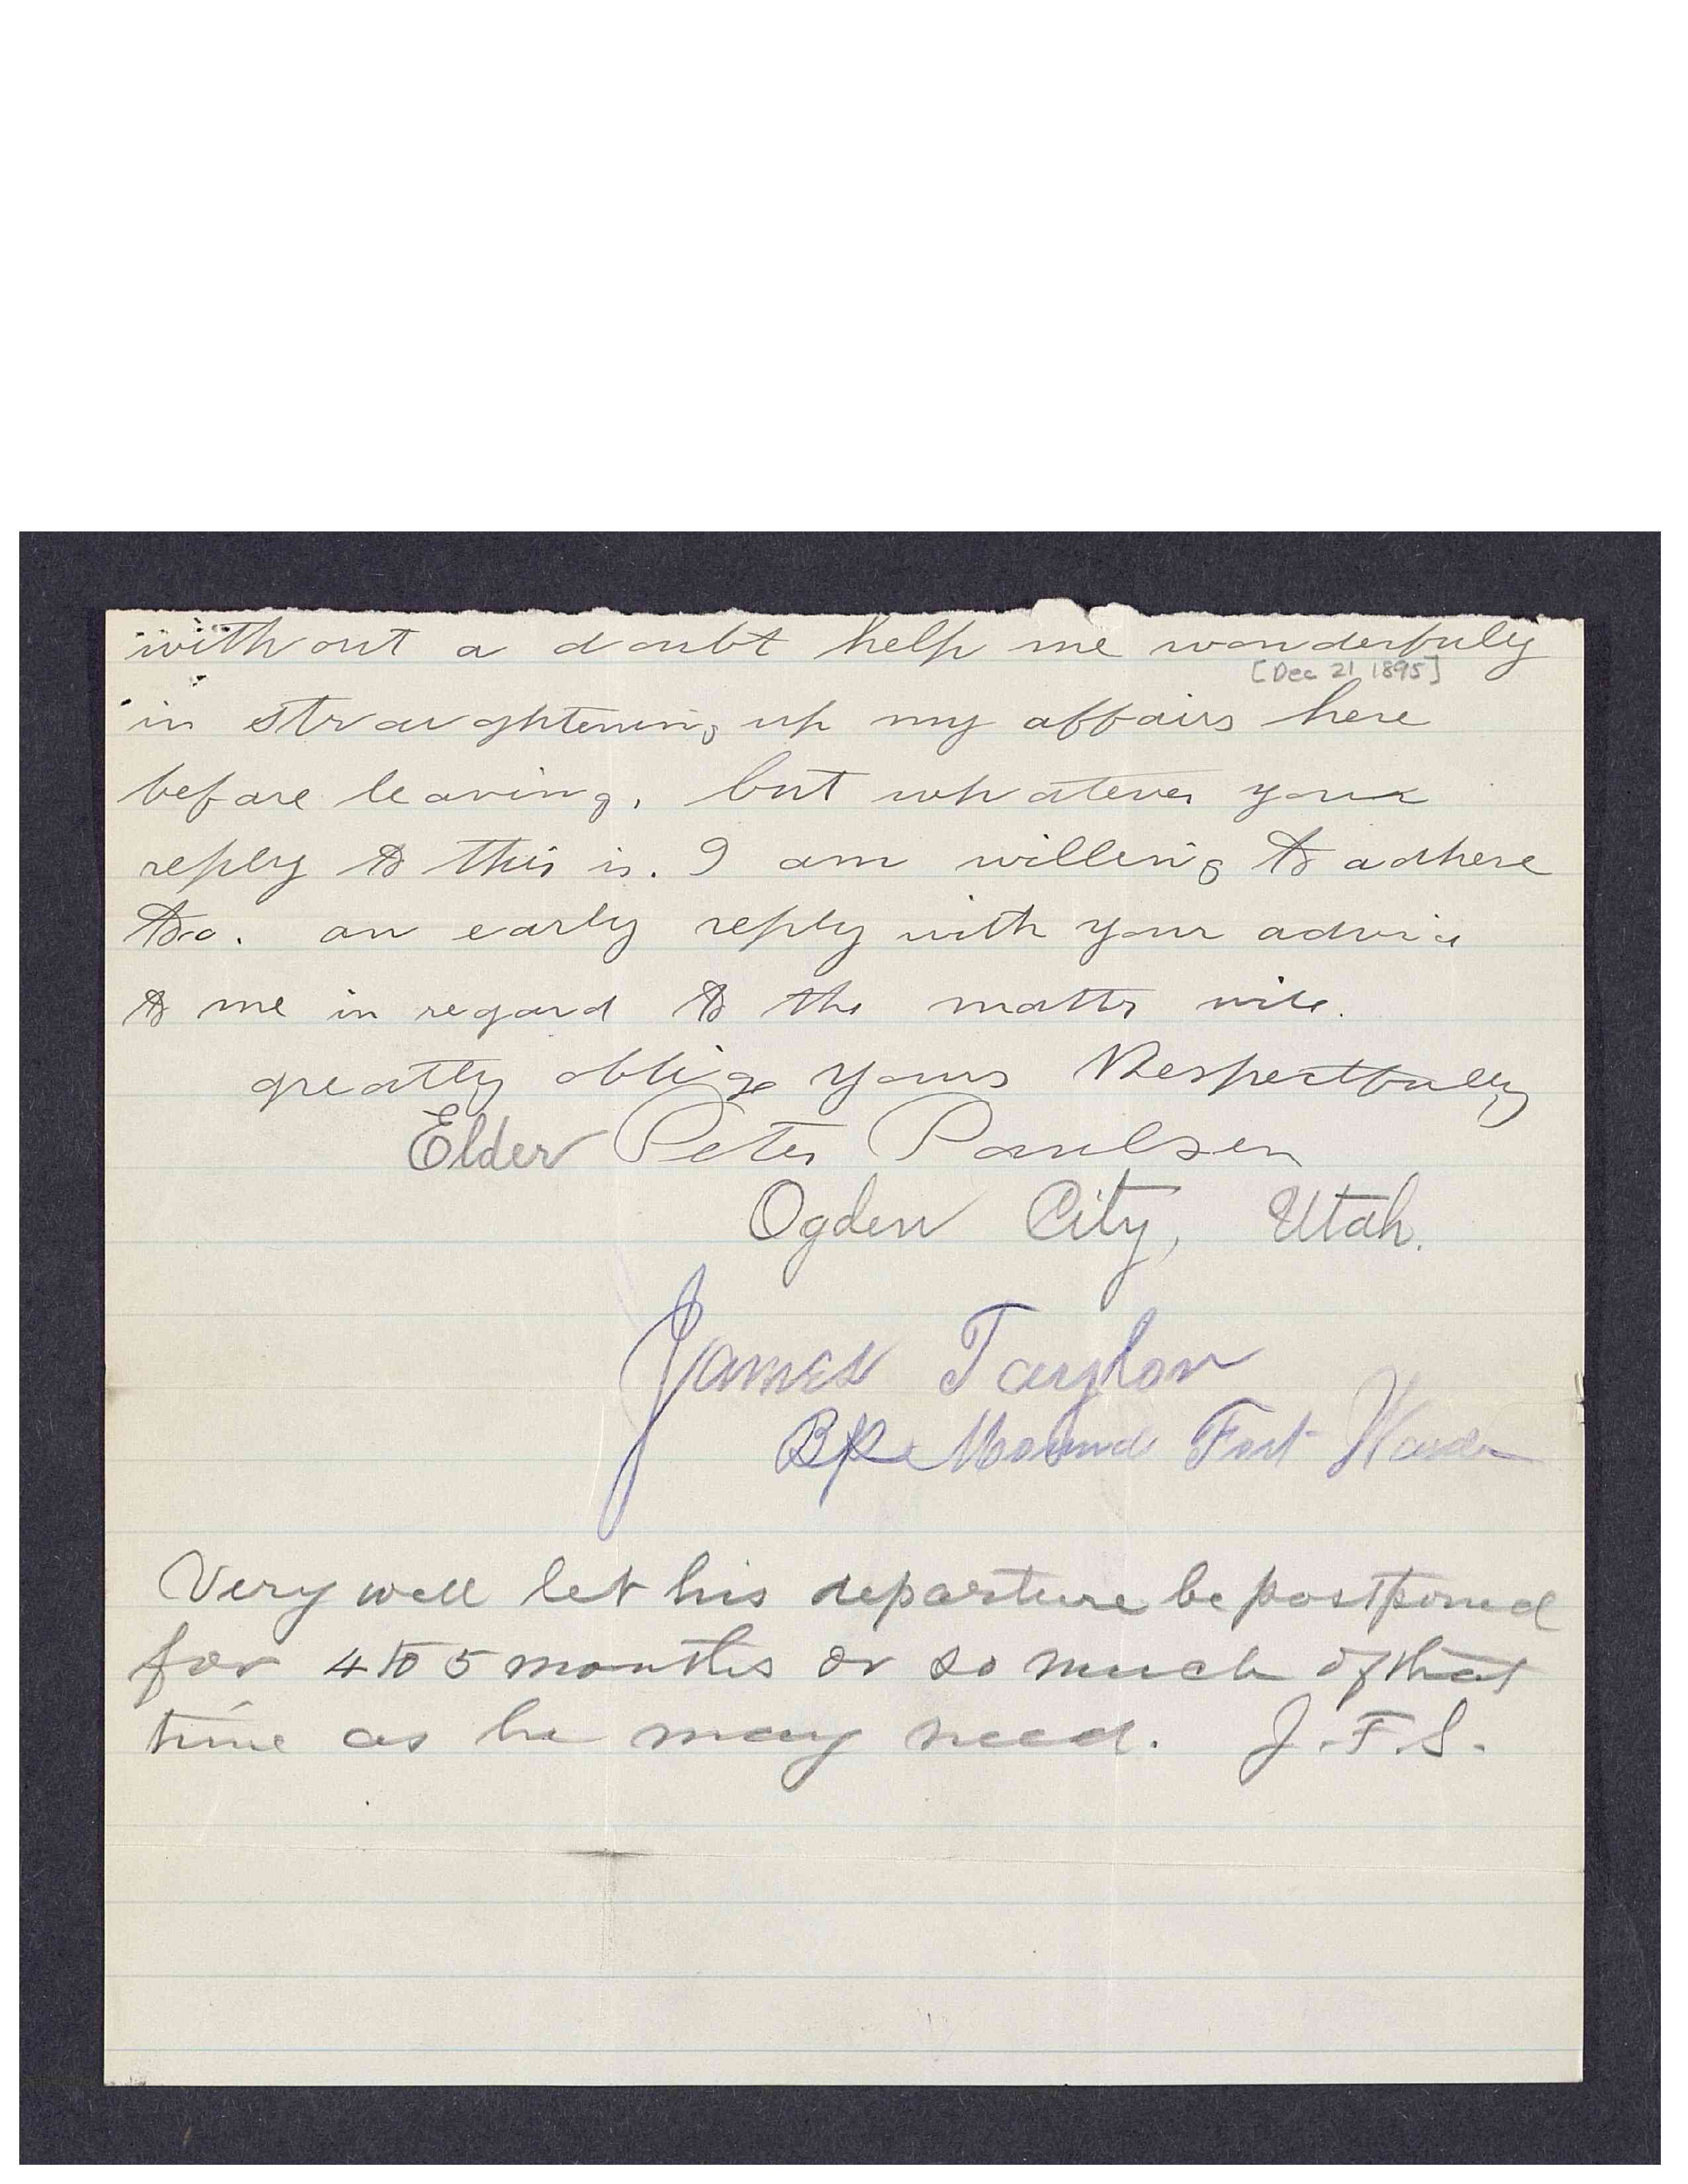 without a doubt help me wonderfuly
[Dec 21 1895]
in straightening up my affairs here
before leaving. but whatever your
reply to this is. I am willing to adhere
too. an early reply with your advice
to me in regard to the matter will.
greatly oblige yours Respectfully
Elder Peter Paulsen
Ogden City, Utah.
James Taylor
Bp Mound Fort Ward
Very well let his departure be postponed
for 4 to 5 months or so much of that
time as he may need. J.F.S.